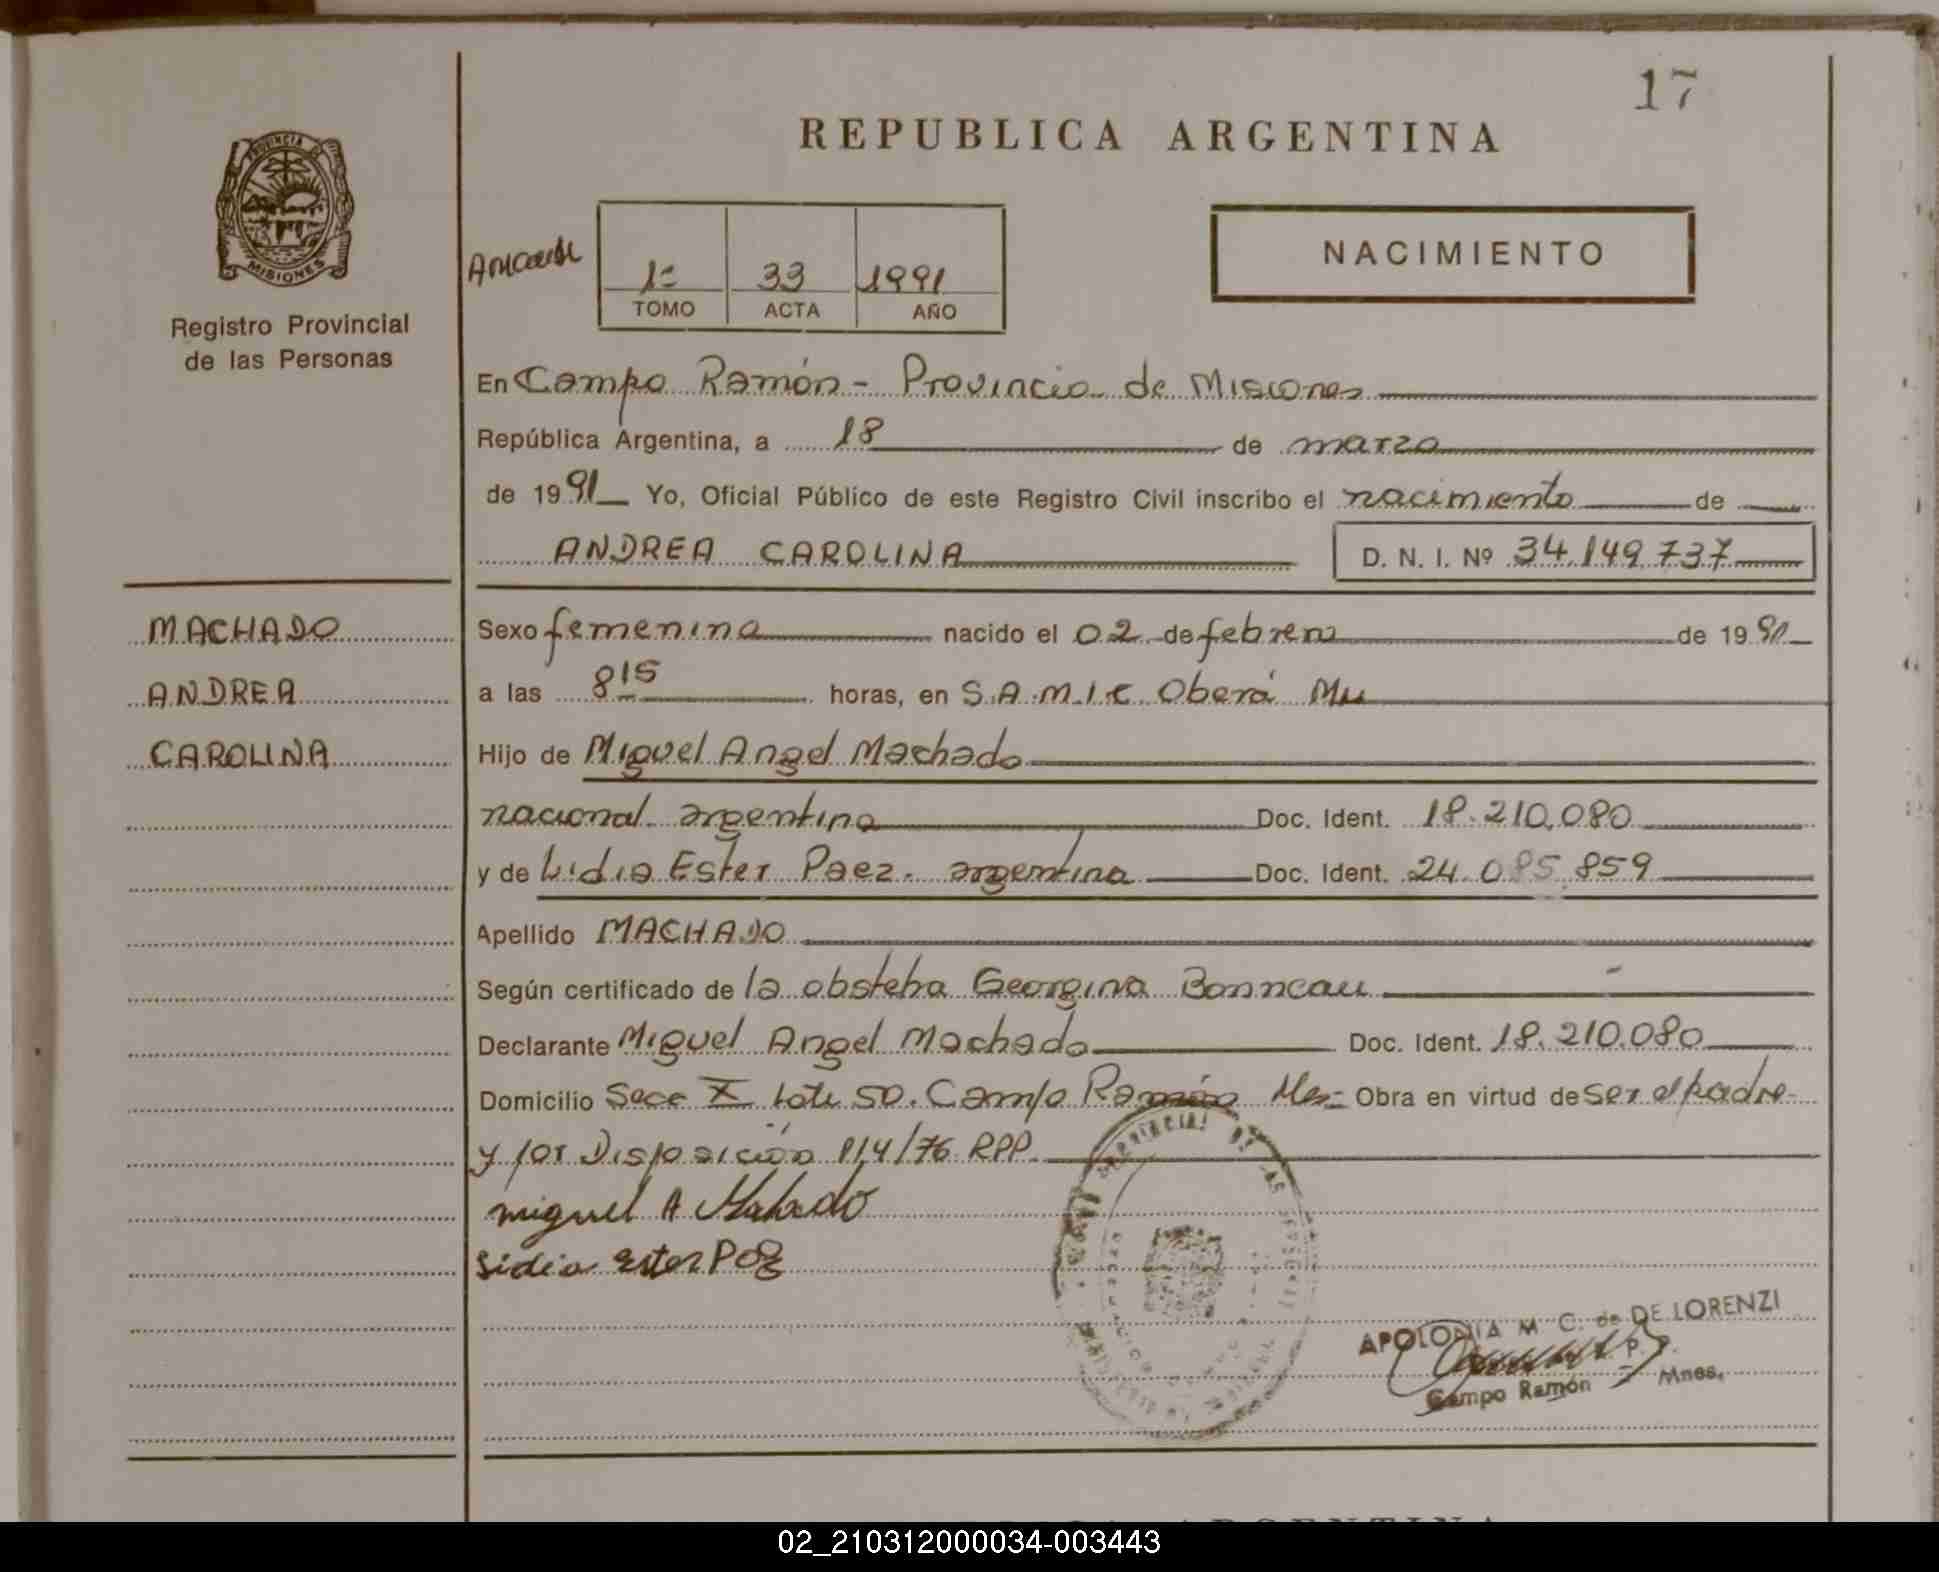 17
REPUBLICA ARGENTINA
PROVINCIA DE
MISIONES
Registro Provincial
de las Personas
1º 33 1991
TOMO ACTA AÑO
NACIMIENTO
En Campo Ramón - Provincia de Misiones
República Argentina, a 18 de marzo
de 1991 Yo, Oficial Público de este Registro Civil inscribo el nacimiento de
ANDREA CAROLINA D. N. I. Nº 34.149.737
MACHADO
ANDREA
CAROLINA
Sexo femenina nacido el 02 de febrero de 19
a las 8 15 horas, en S.A.M.I.C Oberá
Hijo de Miguel Angel Machado
nacional argentina Doc. Ident. 18.210.080
y de Lidia Ester Paez. argentina Doc. Ident. 24.085.859
Apellido MACHADO
Según certificado de la obstetra Georgina Bonneau
Declarante Miguel Angel Machado Doc. Ident. 18.210.080
Domicilio Secc X Lote 50. Campo Ramón Mes= Obra en virtud de ser el padre
y por Disposición 114/76 RPP.
miguel A Machado
Lidia Ester Paez
APOLONIA M. C. de DE LORENZI
Campo Ramón - Mnes.
ARGENTINA
02_210312000034-003443